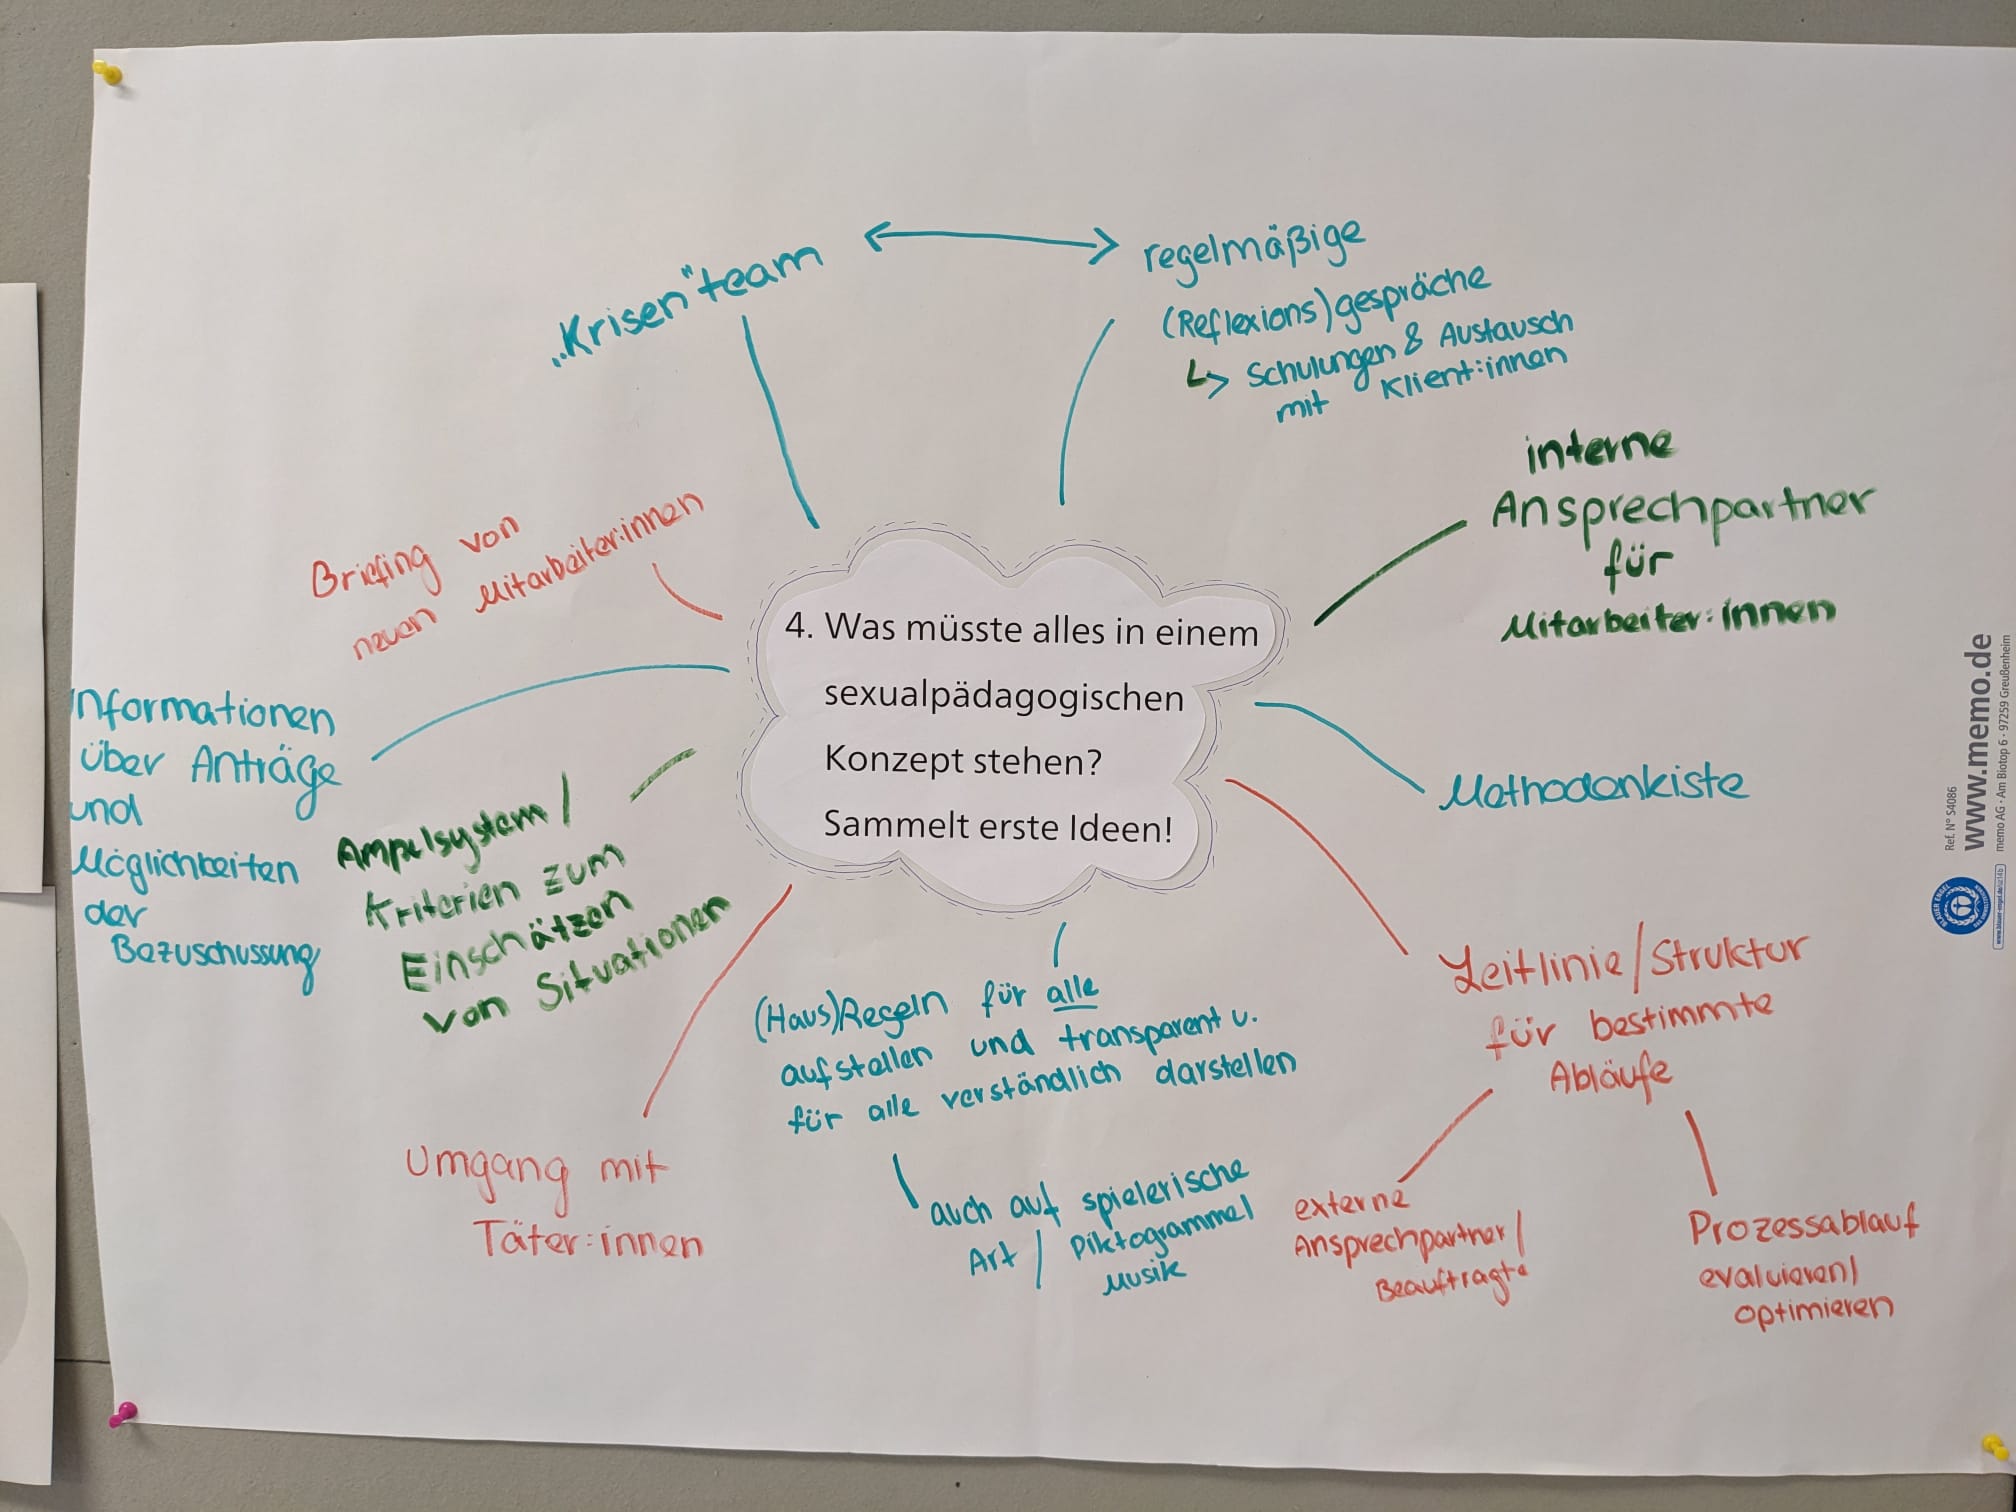 „Krisen"team
regelmäßige
(Reflexions)gespräche
↳ Schulungen & Austausch
mit Klient:innen
interne
Ansprechpartner
für
Mitarbeiter:innen
Briefing von
neuen Mitarbeiter:innen
4. Was müsste alles in einem
sexualpädagogischen
Konzept stehen?
Sammelt erste Ideen!
Informationen
über Anträge
und
Möglichkeiten
der
Bezuschussung
Ampelsystem/
Kriterien zum
Einschätzen
von Situationen
Methodenkiste
Leitlinie/Struktur
für bestimmte
Abläufe
externe
Ansprechpartner/
Beauftragte
Prozessablauf
evaluieren/
optimieren
(Haus)Regeln für alle
aufstellen und transparent u.
für alle verständlich darstellen
auch auf spielerische
Art / Piktogramme/
Musik
Umgang mit
Täter:innen
Ref. N° S4086
www.memo.de
memo AG · Am Biotop 6 · 97259 Greußenheim
BLAUER ENGEL